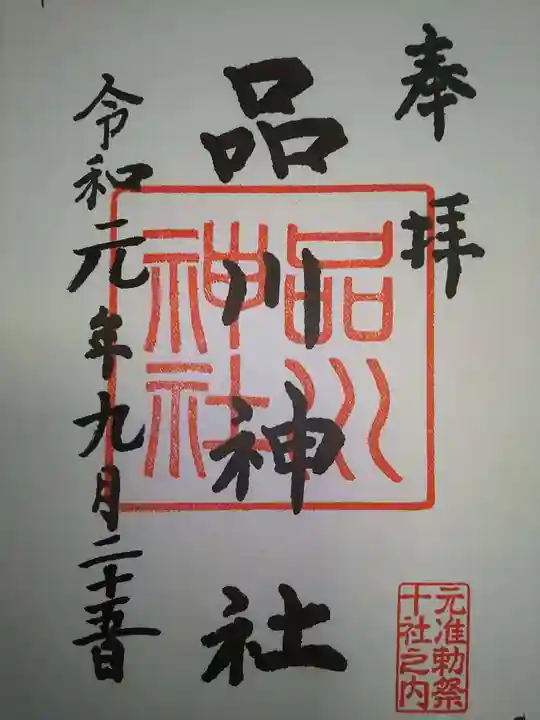 奉拝
品川神社
品川
神社
令和元年九月二十五日
元准勅祭
十社之内